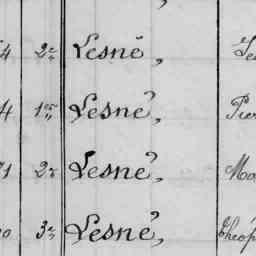 4 2e Lesné, Le
4 1er Lesné, Pier
1 2e Lesné, Ma
0 3e Lesné, Théop